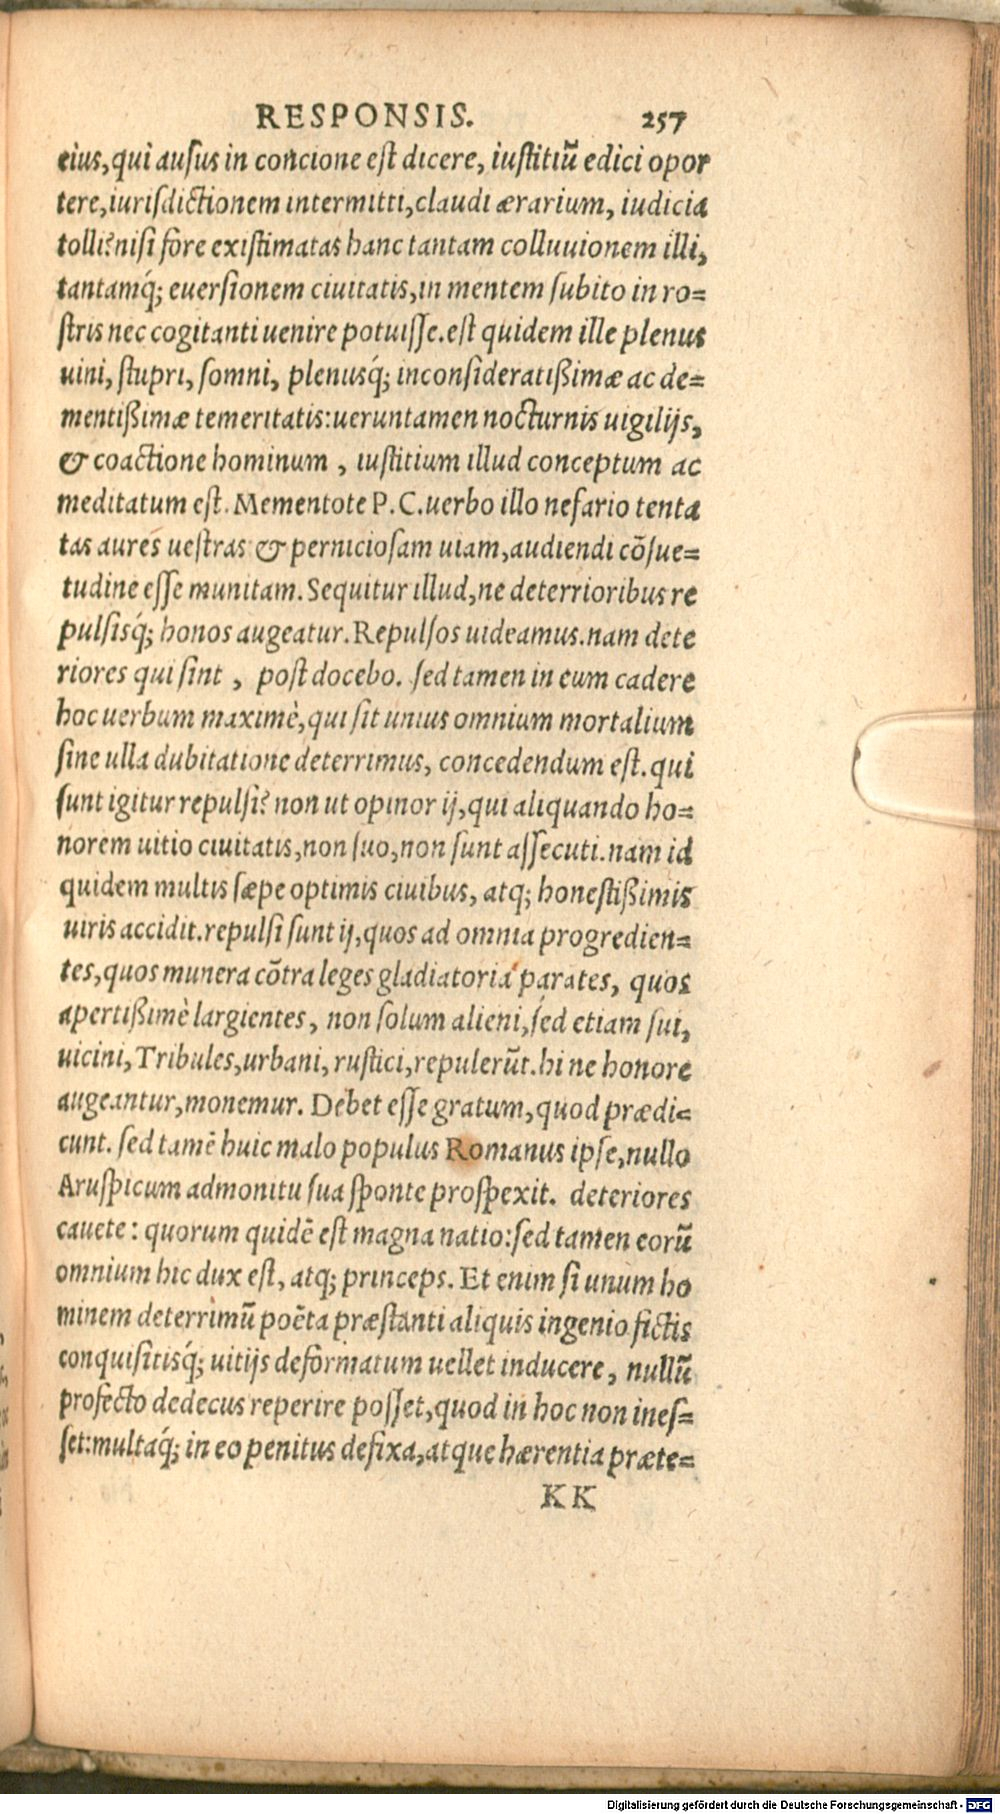 RESPONSIS. 257
eius, qui ausus in concione est dicere, iustitiũ edici opor
tere, iurisdictionem intermitti, claudi ærarium, iudicia
tolli? nisi fore existimatas hanc tantam colluuionem illi,
tantamq́; euersionem ciuitatis, in mentem subito in ro=
stris nec cogitanti uenire potuisse. est quidem ille plenus
uini, stupri, somni, plenusq́; inconsideratißimæ ac de=
mentißimæ temeritatis: ueruntamen nocturnis uigilijs,
& coactione hominum, iustitium illud conceptum ac
meditatum est. Mementote P. C. uerbo illo nefario tenta
tas aures uestras & perniciosam uiam, audiendi cõsue=
tudine esse munitam. Sequitur illud, ne deterrioribus re
pulsisq́; honos augeatur. Repulsos uideamus. nam dete
riores qui sint, post docebo. sed tamen in eum cadere
hoc uerbum maximè, qui sit unius omnium mortalium
sine ulla dubitatione deterrimus, concedendum est. qui
sunt igitur repulsi? non ut opinor ij, qui aliquando ho=
norem uitio ciuitatis, non suo, non sunt assecuti. nam id
quidem multis sæpe optimis ciuibus, atq; honestißimis
uiris accidit. repulsi sunt ij, quos ad omnia progredien=
tes, quos munera cõtra leges gladiatoria parates, quos
apertißimè largientes, non solum alieni, sed etiam sui,
uicini, Tribules, urbani, rustici, repulerũt. hi ne honore
augeantur, monemur. Debet esse gratum, quod prædi=
cunt. sed tamē huic malo populus Romanus ipse, nullo
Aruspicum admonitu sua sponte prospexit. deteriores
cauete: quorum quidē est magna natio: sed tamen eorũ
omnium hic dux est, atq; princeps. Et enim si unum ho
minem deterrimũ poēta præstanti aliquis ingenio fictis
conquisitisq́; uitijs deformatum uellet inducere, nullũ
profecto dedecus reperire posset, quod in hoc non ines=
set: multaq́; in eo penitus defixa, atque hærentia præte=
KK
Digitalisierung gefördert durch die Deutsche Forschungsgemeinschaft - DFG